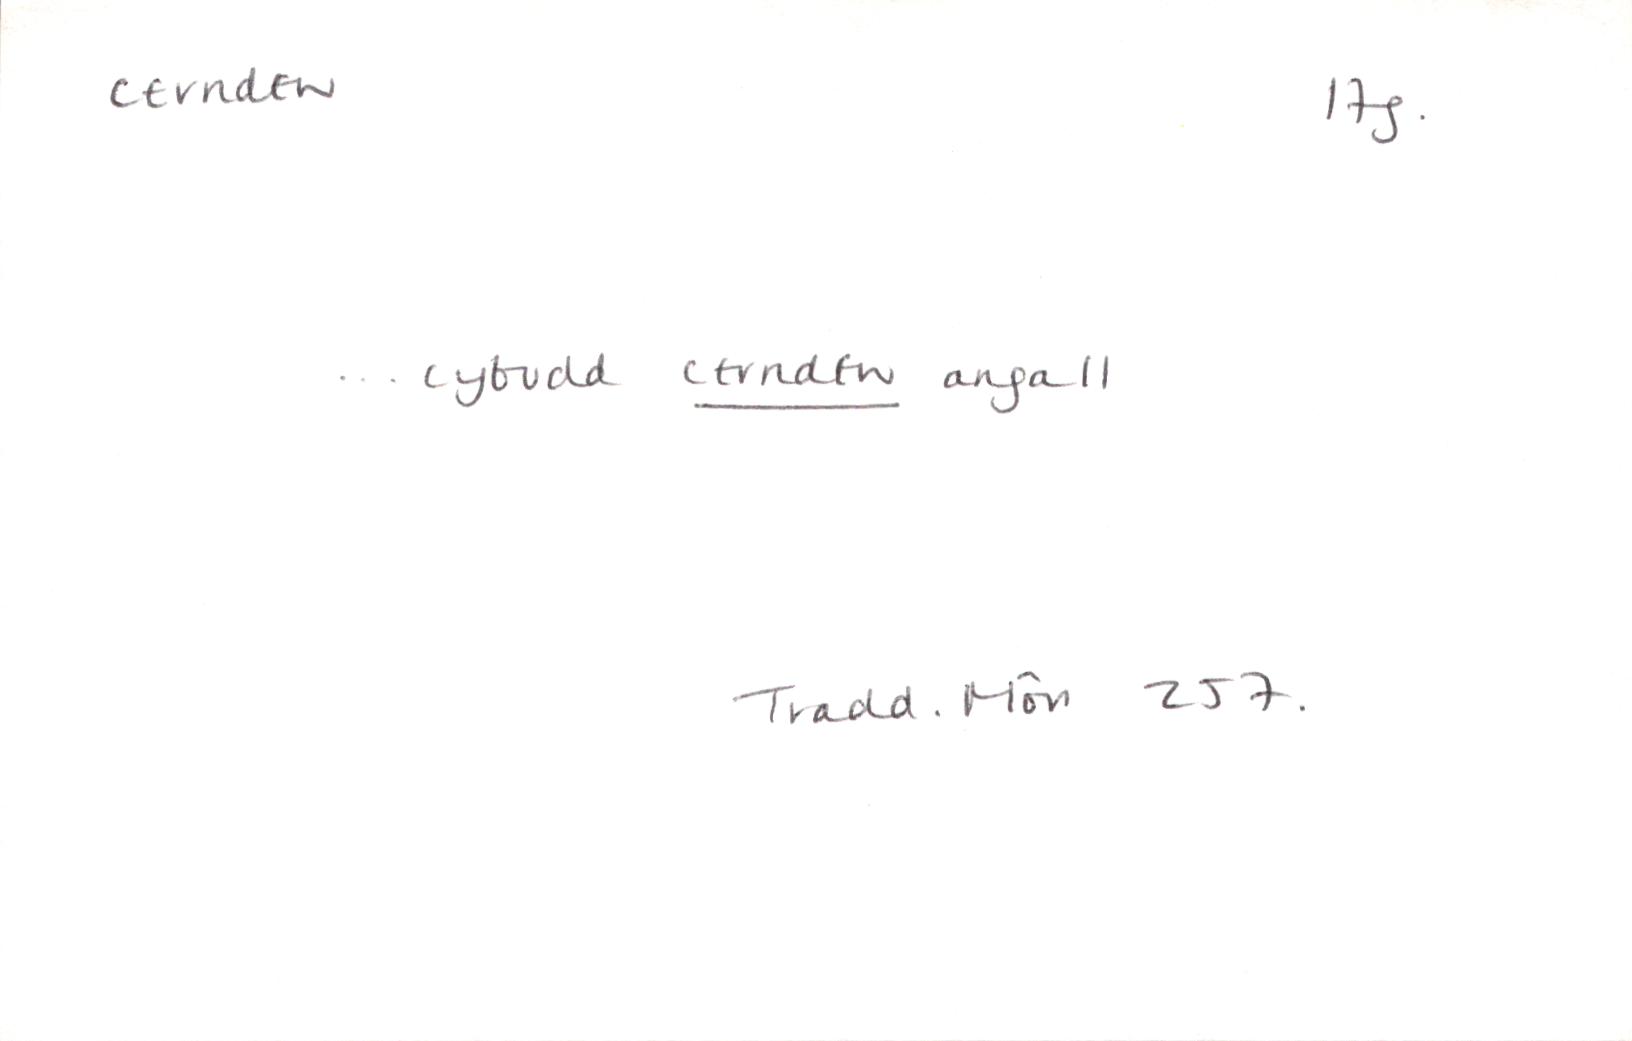 cerndew 17g.
... cybudd cerndew angall
Tradd. Môn 257.